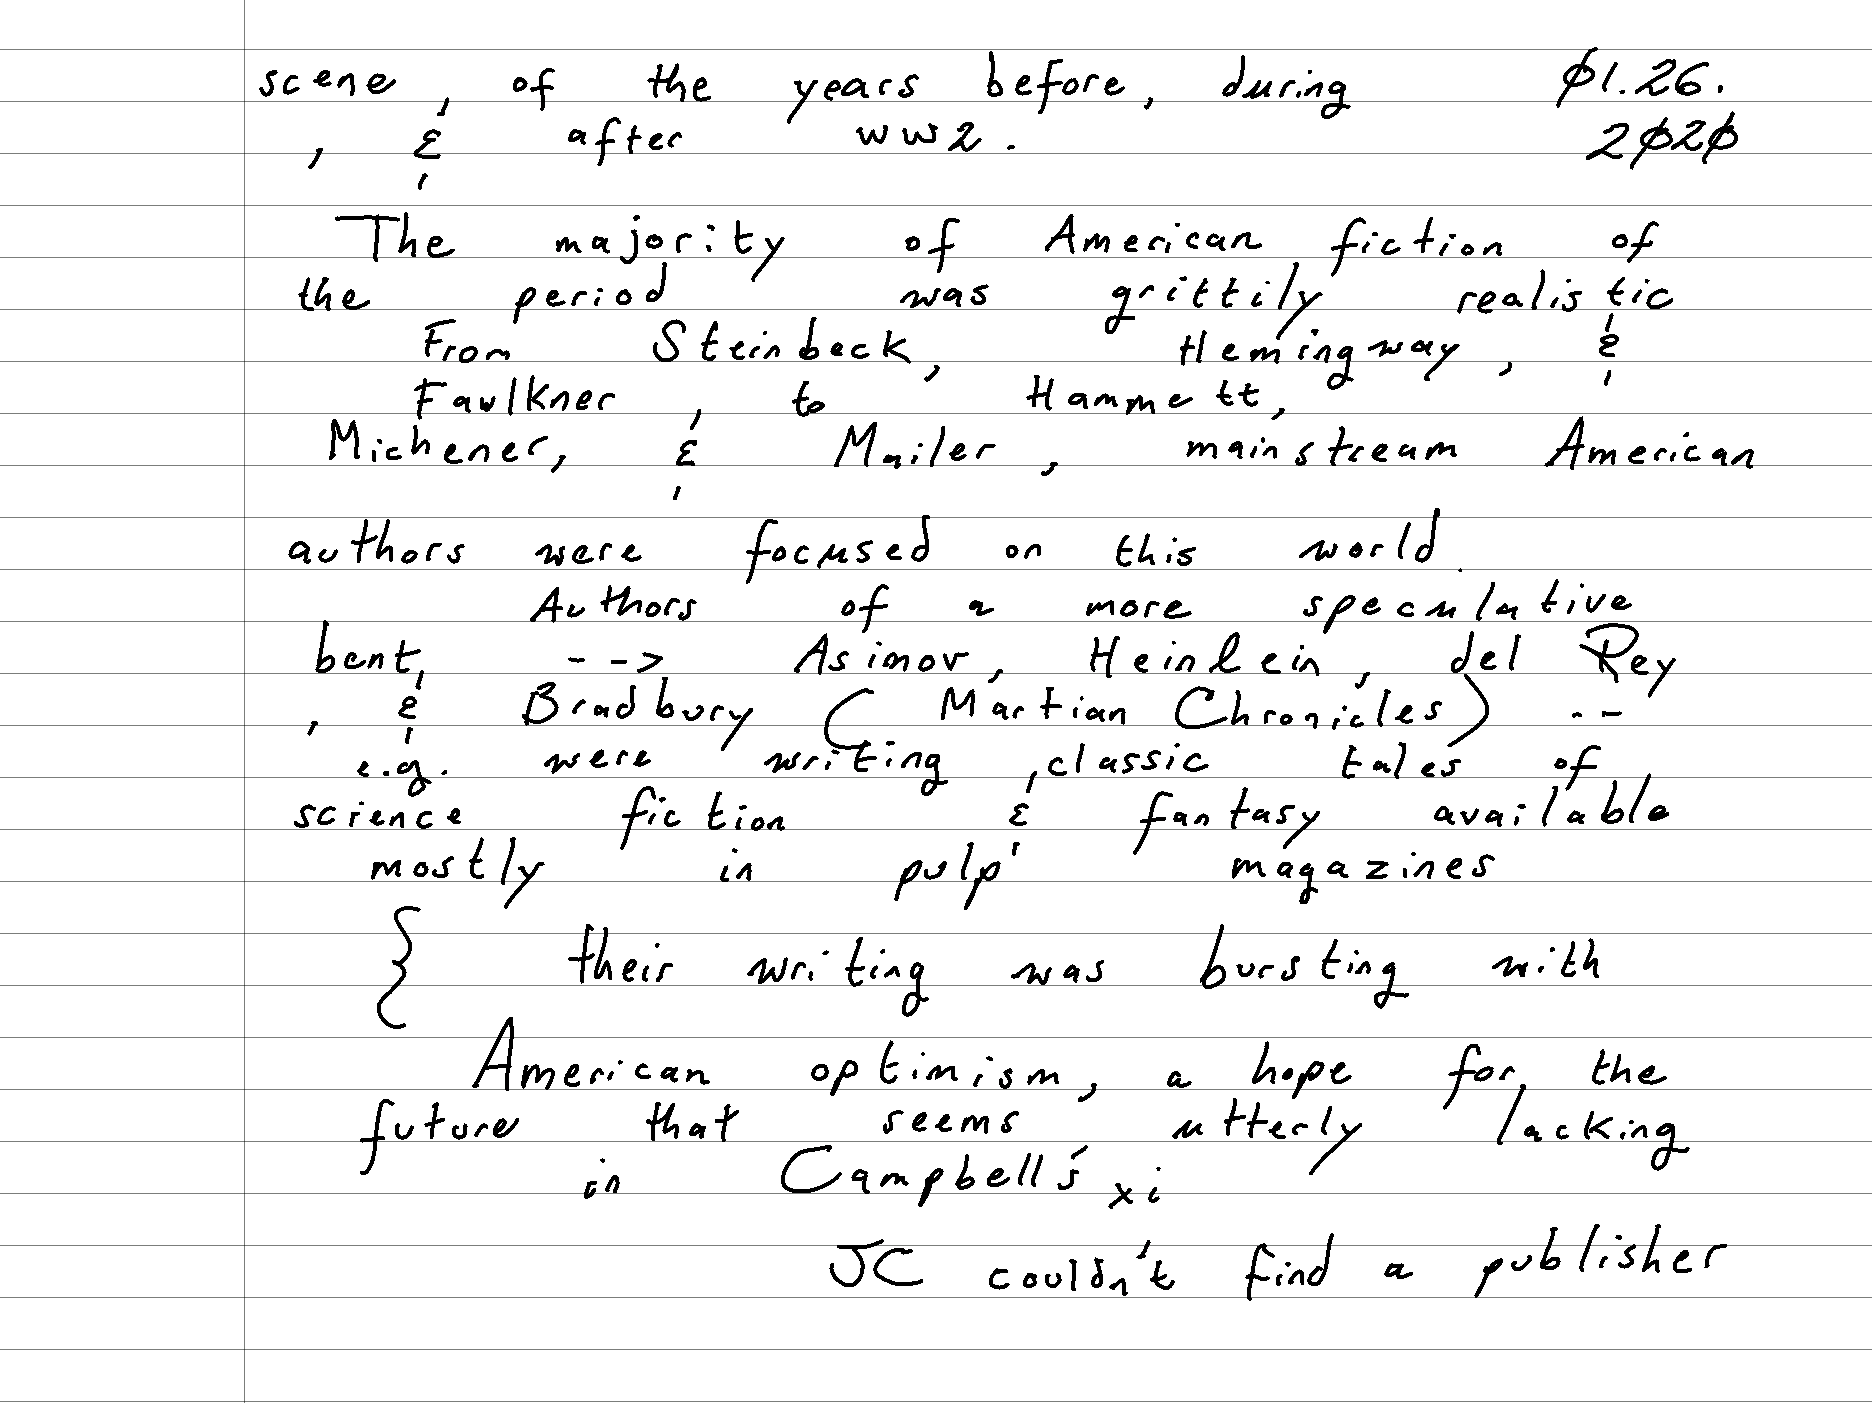 scene, of the years before, during 01.26.
, & after ww2. 2020
The majority of American fiction of
the period was grittily realistic
From Steinbeck, Hemingway, &
Faulkner, to Hammett,
Michener, & Mailer, mainstream American
authors were focused on this world.
Authors of a more speculative
bent, --> Asimov, Heinlein, del Rey
, & Bradbury (Martian Chronicles) --
e.g. were writing classic tales of
science fiction & fantasy available
mostly in pulp magazines
{ their writing was bursting with
American optimism, a hope for the
future that seems utterly lacking
in Campbell's xi
JC couldn't find a publisher